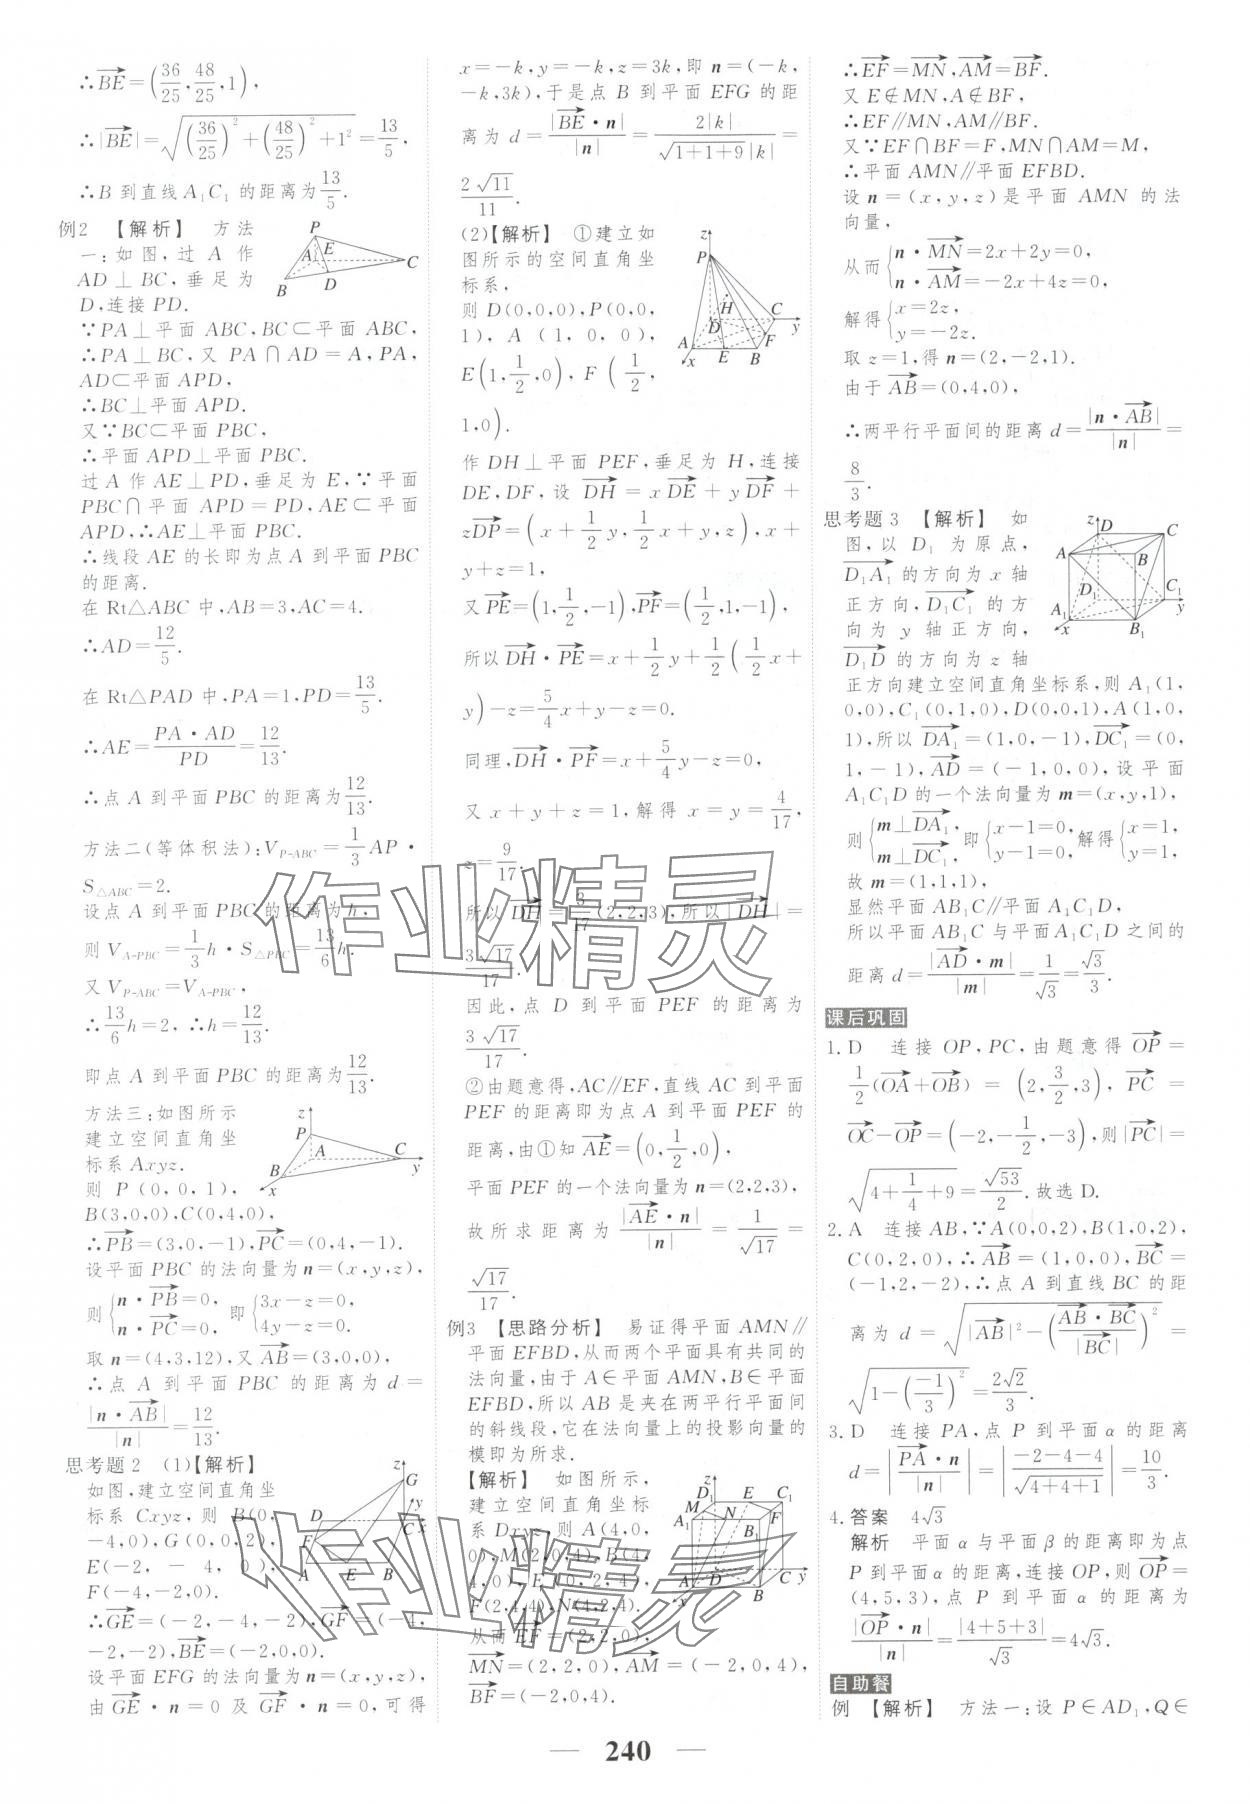 ∴BE=(36/25,48/25,1),
∴|BE|=√((36/25)²+(48/25)²+1²)=13/5.
∴B到直线A₁C₁的距离为13/5.
例2 【解析】 方法
一:如图,过A作
AD⊥BC,垂足为
D,连接PD.
∵PA⊥平面ABC,BC⊂平面ABC,
∴PA⊥BC,又PA∩AD=A,PA,
AD⊂平面APD,
∴BC⊥平面APD.
又∵BC⊂平面PBC,
∴平面APD⊥平面PBC.
过A作AE⊥PD,垂足为E,∵平面
PBC∩平面APD=PD,AE⊂平面
APD,∴AE⊥平面PBC.
∴线段AE的长即为点A到平面PBC
的距离.
在Rt△ABC中,AB=3,AC=4.
∴AD=12/5.
在Rt△PAD中,PA=1,PD=13/5.
∴AE=PA·AD/PD=12/13.
∴点A到平面PBC的距离为12/13.
方法二(等体积法):V_{P-ABC}=1/3AP·
S_{△ABC}=2.
设点A到平面PBC的距离为h,
则V_{A-PBC}=1/3h·S_{△PBC}=13/6h.
又V_{P-ABC}=V_{A-PBC},
∴13/6h=2,∴h=12/13.
即点A到平面PBC的距离为12/13.
方法三:如图所示
建立空间直角坐
标系Axyz.
则P(0,0,1),
B(3,0,0),C(0,4,0),
∴PB=(3,0,-1),PC=(0,4,-1).
设平面PBC的法向量为n=(x,y,z),
则{n·PB=0,n·PC=0,即{3x-z=0,4y-z=0.
取n=(4,3,12),又AB=(3,0,0),
∴点A到平面PBC的距离为d=
|n·AB|/|n|=12/13.
思考题2 (1)【解析】
如图,建立空间直角坐
标系Cxyz,则B(0,
-4,0),G(0,0,2),
E(-2,-4,0),
F(-4,-2,0).
∴GE=(-2,-4,-2),GF=(-4,
-2,-2),BE=(-2,0,0).
设平面EFG的法向量为n=(x,y,z),
由GE·n=0及GF·n=0,可得
x=-k,y=-k,z=3k,即n=(-k,
-k,3k),于是点B到平面EFG的距
离为d=|BE·n|/|n|=2|k|/(√(1+1+9)|k|)=
2√11/11.
(2)【解析】 ①建立如
图所示的空间直角坐
标系,
则D(0,0,0),P(0,0,
1),A(1,0,0),
E(1,1/2,0),F(1/2,
1,0).
作DH⊥平面PEF,垂足为H,连接
DE,DF,设DH=xDE+yDF+
zDP=(x+1/2y,1/2x+y,z),x+
y+z=1,
又PE=(1,1/2,-1),PF=(1/2,1,-1),
所以DH·PE=x+1/2y+1/2(1/2x+
y)-z=5/4x+y-z=0.
同理,DH·PF=x+5/4y-z=0,
又x+y+z=1,解得x=y=4/17,
z=9/17.
所以DH=3/17(2,2,3),所以|DH|=
3√17/17.
因此,点D到平面PEF的距离为
3√17/17.
②由题意得,AC∥EF,直线AC到平面
PEF的距离即为点A到平面PEF的
距离,由①知AE=(0,1/2,0),
平面PEF的一个法向量为n=(2,2,3),
故所求距离为|AE·n|/|n|=1/√17=
√17/17.
例3 【思路分析】 易证得平面AMN∥
平面EFBD,从而两个平面具有共同的
法向量,由于A∈平面AMN,B∈平面
EFBD,所以AB是夹在两平行平面间
的斜线段,它在法向量上的投影向量的
模即为所求.
【解析】 如图所示,
建立空间直角坐标
系Dxyz,则A(4,0,
0),M(2,0,4),B(4,
4,0),E(0,2,4),
F(2,4,4),N(4,2,4).
从而EF=(2,2,0),
MN=(2,2,0),AM=(-2,0,4),
BF=(-2,0,4).
∴EF=MN,AM=BF.
又E∉MN,A∉BF,
∴EF∥MN,AM∥BF.
又∵EF∩BF=F,MN∩AM=M,
∴平面AMN∥平面EFBD.
设n=(x,y,z)是平面AMN的法
向量,
从而{n·MN=2x+2y=0,n·AM=-2x+4z=0,
解得{x=2z,y=-2z.
取z=1,得n=(2,-2,1).
由于AB=(0,4,0),
∴两平行平面间的距离d=|n·AB|/|n|=
8/3.
思考题3 【解析】 如
图,以D₁为原点,
D₁A₁的方向为x轴
正方向,D₁C₁的方
向为y轴正方向,
D₁D的方向为z轴
正方向建立空间直角坐标系,则A₁(1,
0,0),C₁(0,1,0),D(0,0,1),A(1,0,
1),所以DA₁=(1,0,-1),DC₁=(0,
1,-1),AD=(-1,0,0),设平面
A₁C₁D的一个法向量为m=(x,y,1),
则{m⊥DA₁,m⊥DC₁,即{x-1=0,y-1=0,解得{x=1,y=1,
故m=(1,1,1),
显然平面AB₁C∥平面A₁C₁D,
所以平面AB₁C与平面A₁C₁D之间的
距离d=|AD·m|/|m|=1/√3=√3/3.
课后巩固
1.D 连接OP,PC,由题意得OP=
1/2(OA+OB)=(2,3/2,3),PC=
OC-OP=(-2,-1/2,-3),则|PC|=
√(4+1/4+9)=√53/2.故选D.
2.A 连接AB,∵A(0,0,2),B(1,0,2),
C(0,2,0),∴AB=(1,0,0),BC=
(-1,2,-2),∴点A到直线BC的距
离为d=√(|AB|²-(AB·BC/|BC|)²)=
√(1-(-1/3)²)=2√2/3.
3.D 连接PA,点P到平面α的距离
d=|PA·n/|n||=|(-2-4-4)/√(4+4+1)|=10/3.
4.答案 4√3
解析 平面α与平面β的距离即为点
P到平面α的距离,连接OP,则OP=
(4,5,3),点P到平面α的距离为
|OP·n|/|n|=|4+5+3|/√3=4√3.
自助餐
例 【解析】 方法一:设P∈AD₁,Q∈
作业精灵
作业精灵
— 240 —